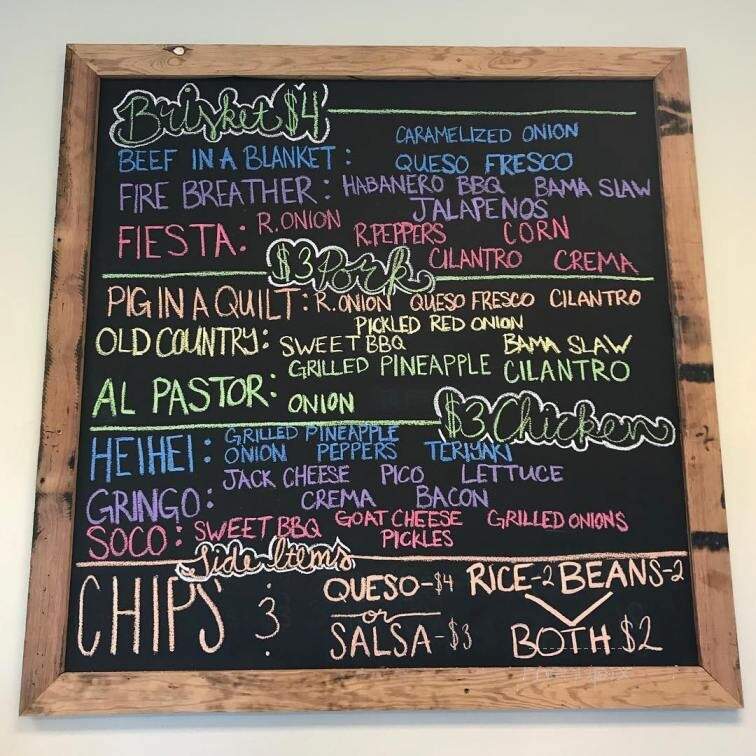 Brisket $4
BEEF IN A BLANKET: CARAMELIZED ONION
QUESO FRESCO
FIRE BREATHER: HABANERO BBQ BAMA SLAW
JALAPENOS
FIESTA: R.ONION R.PEPPERS CORN
CILANTRO CREMA
$3 Pork
PIG IN A QUILT: R.ONION QUESO FRESCO CILANTRO
OLD COUNTRY: SWEET BBQ PICKLED RED ONION BAMA SLAW
AL PASTOR: GRILLED PINEAPPLE CILANTRO
ONION
$3 Chicken
HEIHEI: GRILLED PINEAPPLE
ONION PEPPERS TERIYAKI
GRINGO: JACK CHEESE PICO LETTUCE
CREMA BACON
SOCO: SWEET BBQ GOAT CHEESE GRILLED ONIONS
PICKLES
Side Items
CHIPS : 3 QUESO-$4 RICE-2 BEANS-2
or
SALSA-$3 BOTH $2